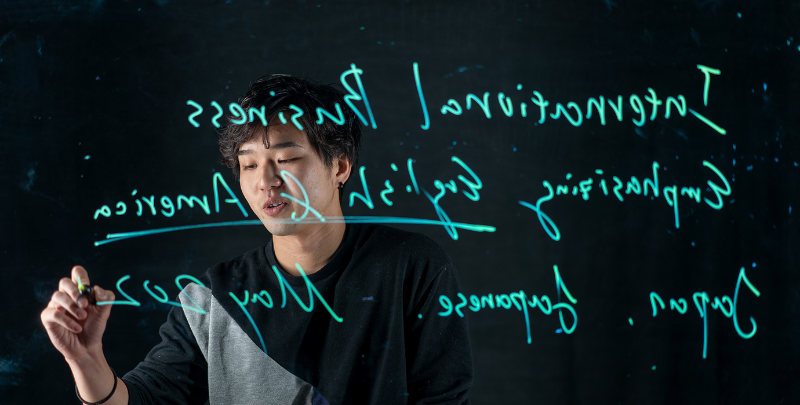 International Business
Emphasizing English & America
Japan. Japanese. May 202